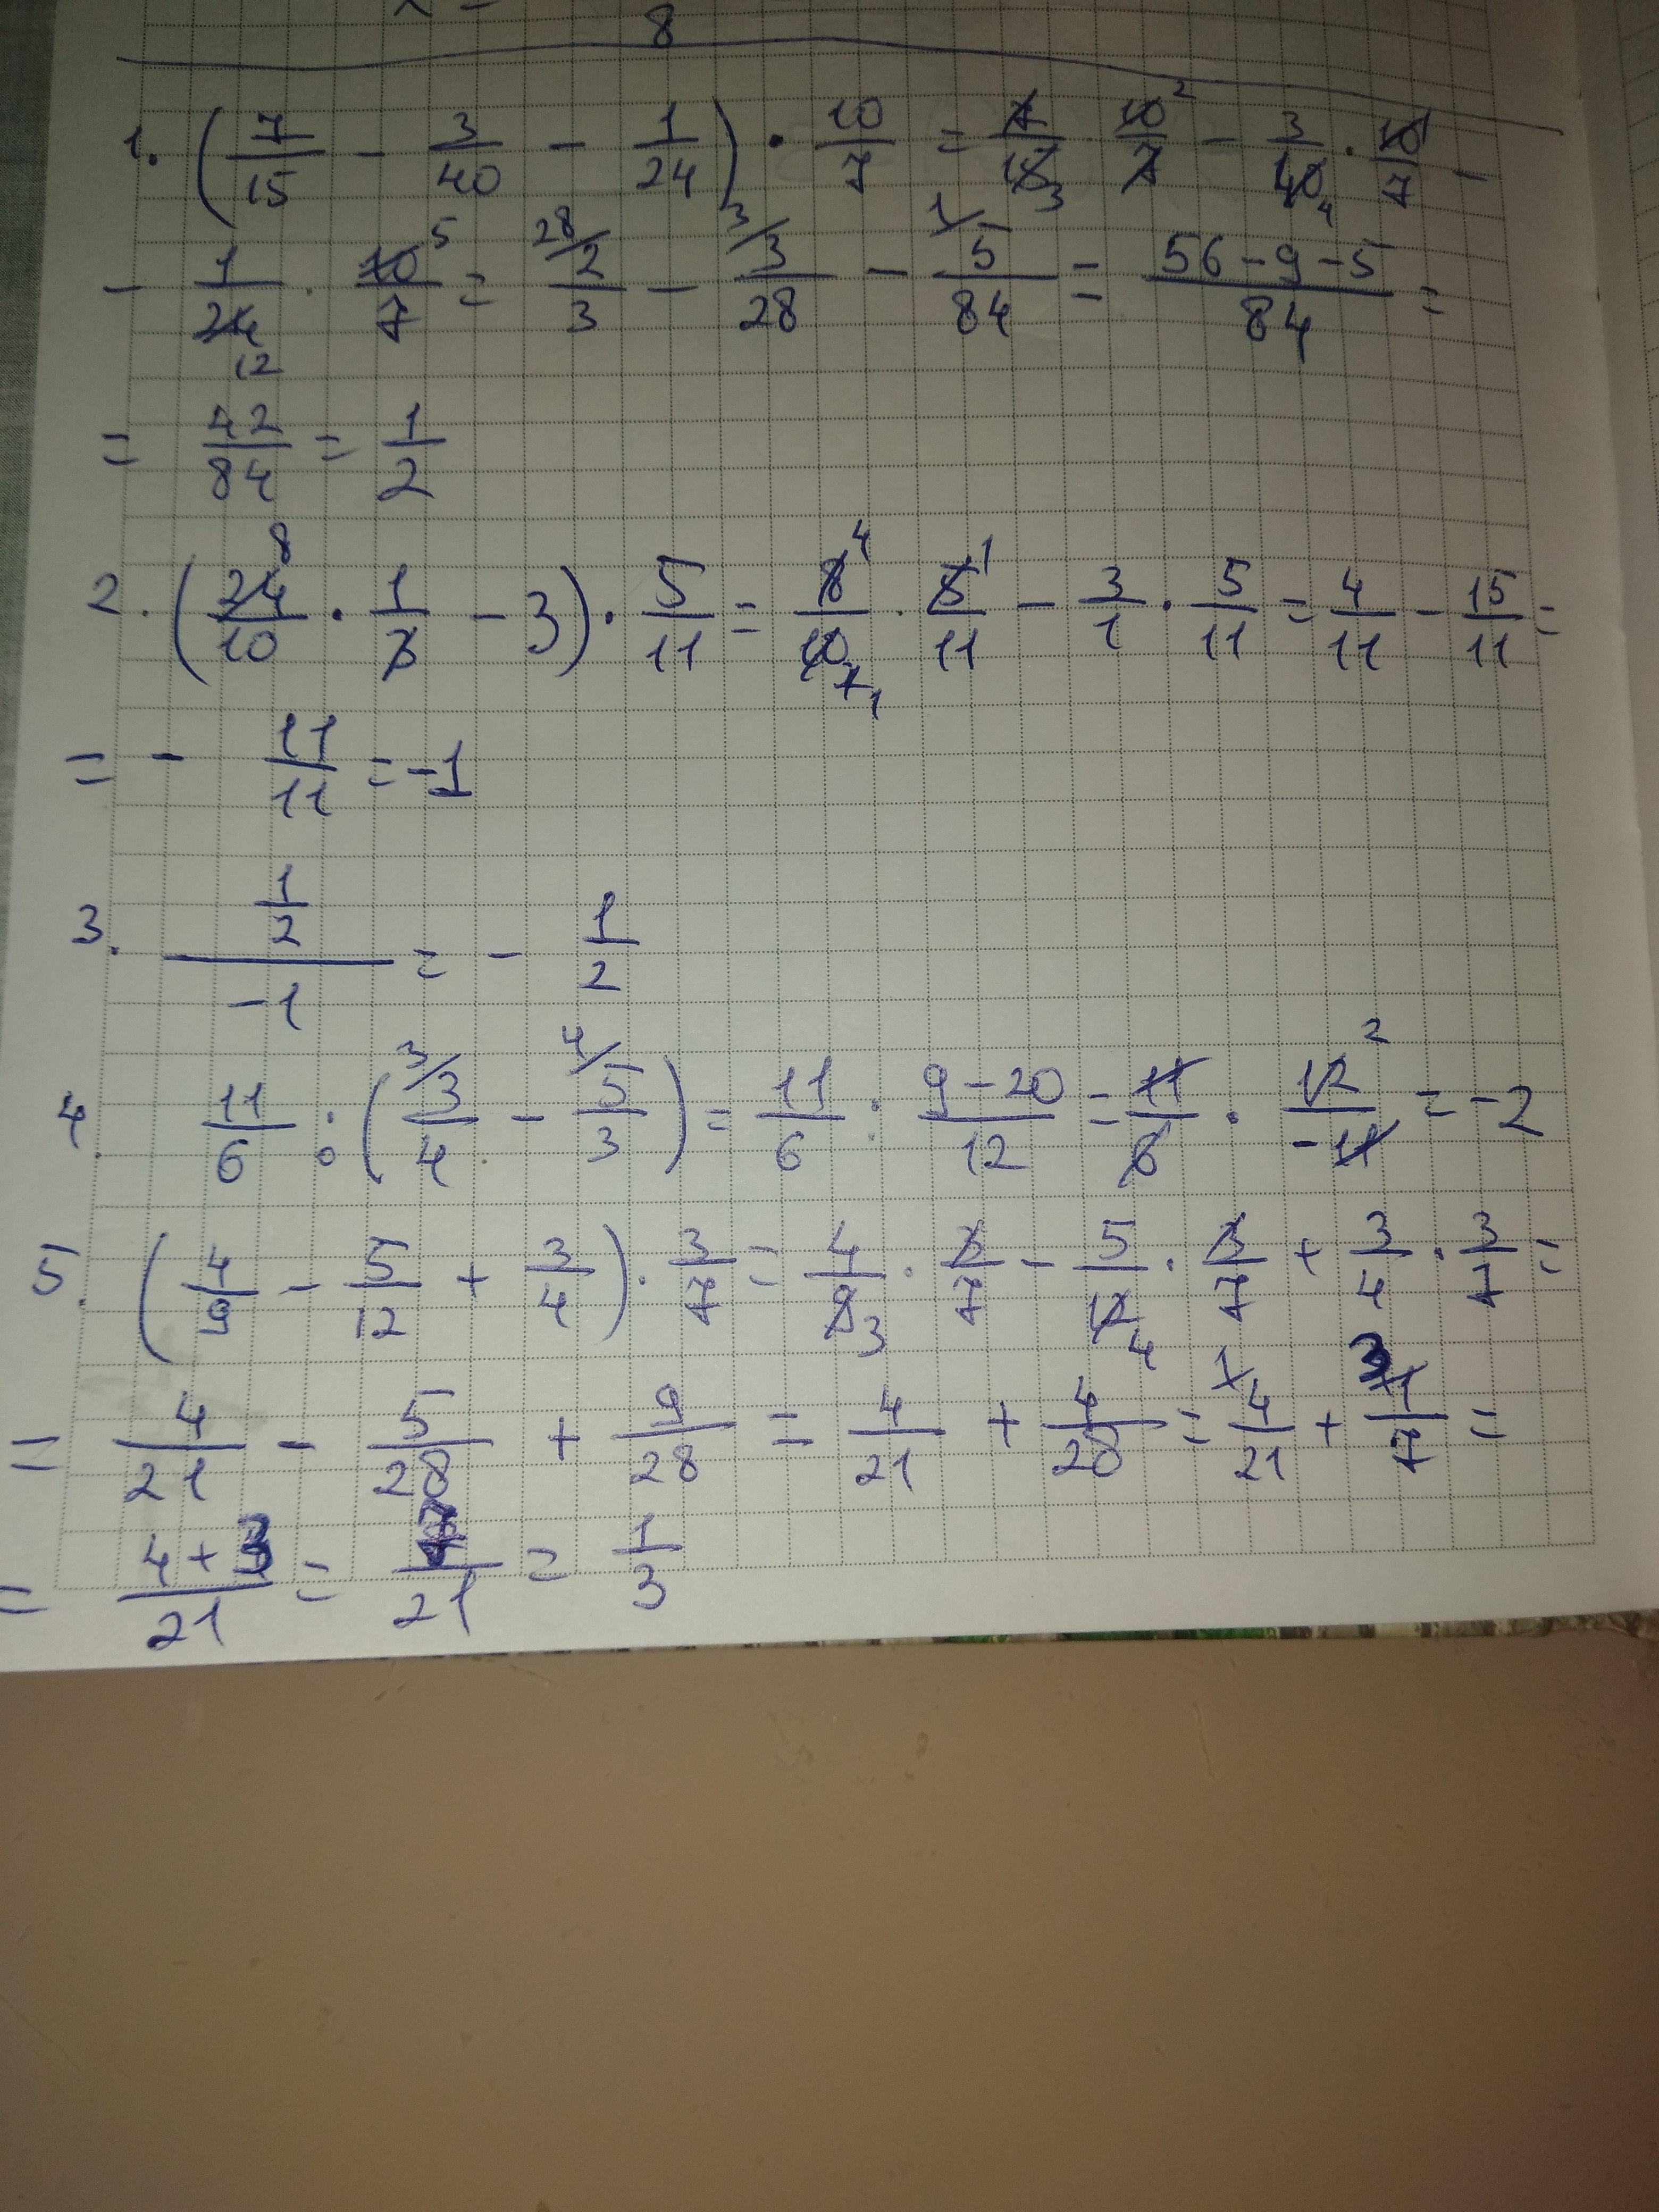 8
1. (7/15 - 3/40 - 1/24) · 10/7 = 7/15 3 · 10/7 2 - 3/40 4 · 10/7 1 -
- 1/24 12 · 10/7 5 = 28/ 2/3 - 3/ 3/28 - 1/ 5/84 = (56-9-5)/84 =
= 42/84 = 1/2
2. (24/10 8 · 1/3 - 3) · 5/11 = 8/10 4 1 · 5/11 1 - 3/1 · 5/11 = 4/11 - 15/11 =
= - 11/11 = -1
3. (1/2)/-1 = - 1/2
4. 11/6 : (3/ 3/4 - 4/ 5/3) = 11/6 : (9-20)/12 = 11/6 · 12/-11 2 = -2
5. (4/9 - 5/12 + 3/4) · 3/7 = 4/9 3 · 3/7 - 5/12 4 · 3/7 + 3/4 · 3/7 =
= 4/21 - 5/28 + 9/28 = 4/21 + 4/28 = 1/ 4/21 + 3/ 1/7 =
= (4+3)/21 = 7/21 = 1/3